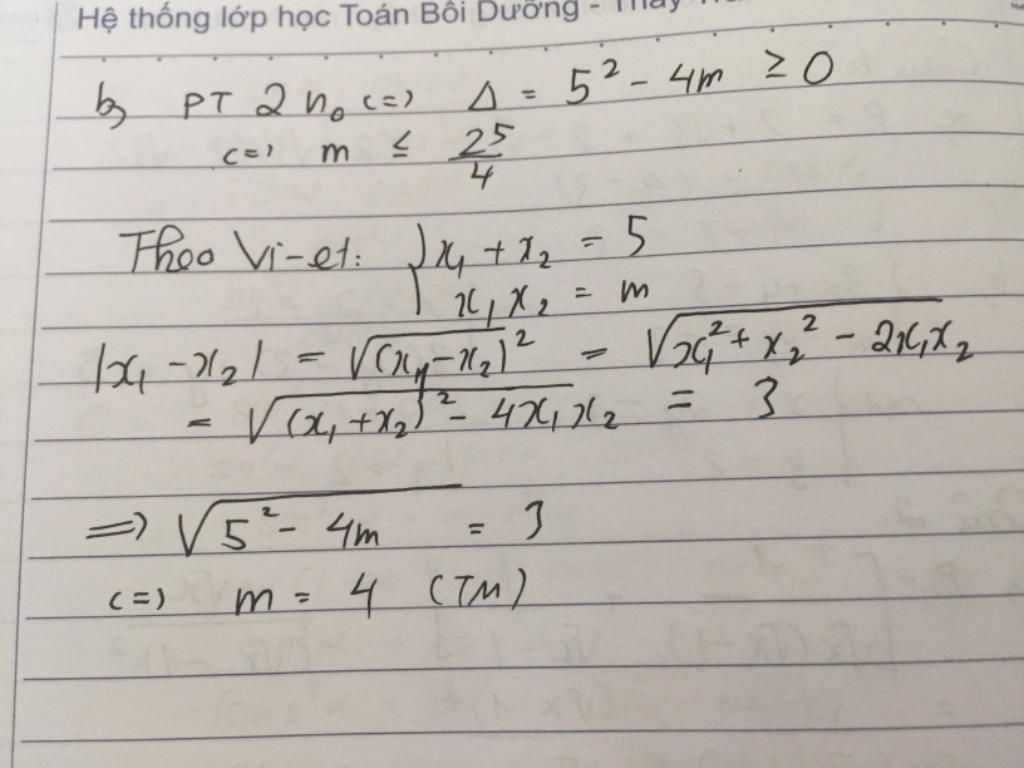 Hệ thống lớp học Toán Bồi Dưỡng - Thầy
b, PT 2 n₀ <=> Δ = 5² - 4m ≥ 0
<=> m ≤ 25/4
Theo Vi-et: { x₁ + x₂ = 5
x₁x₂ = m
|x₁ - x₂| = √(x₁ - x₂)² = √x₁² + x₂² - 2x₁x₂
= √(x₁ + x₂)² - 4x₁x₂ = 3
=> √5² - 4m = 3
<=> m = 4 (TM)